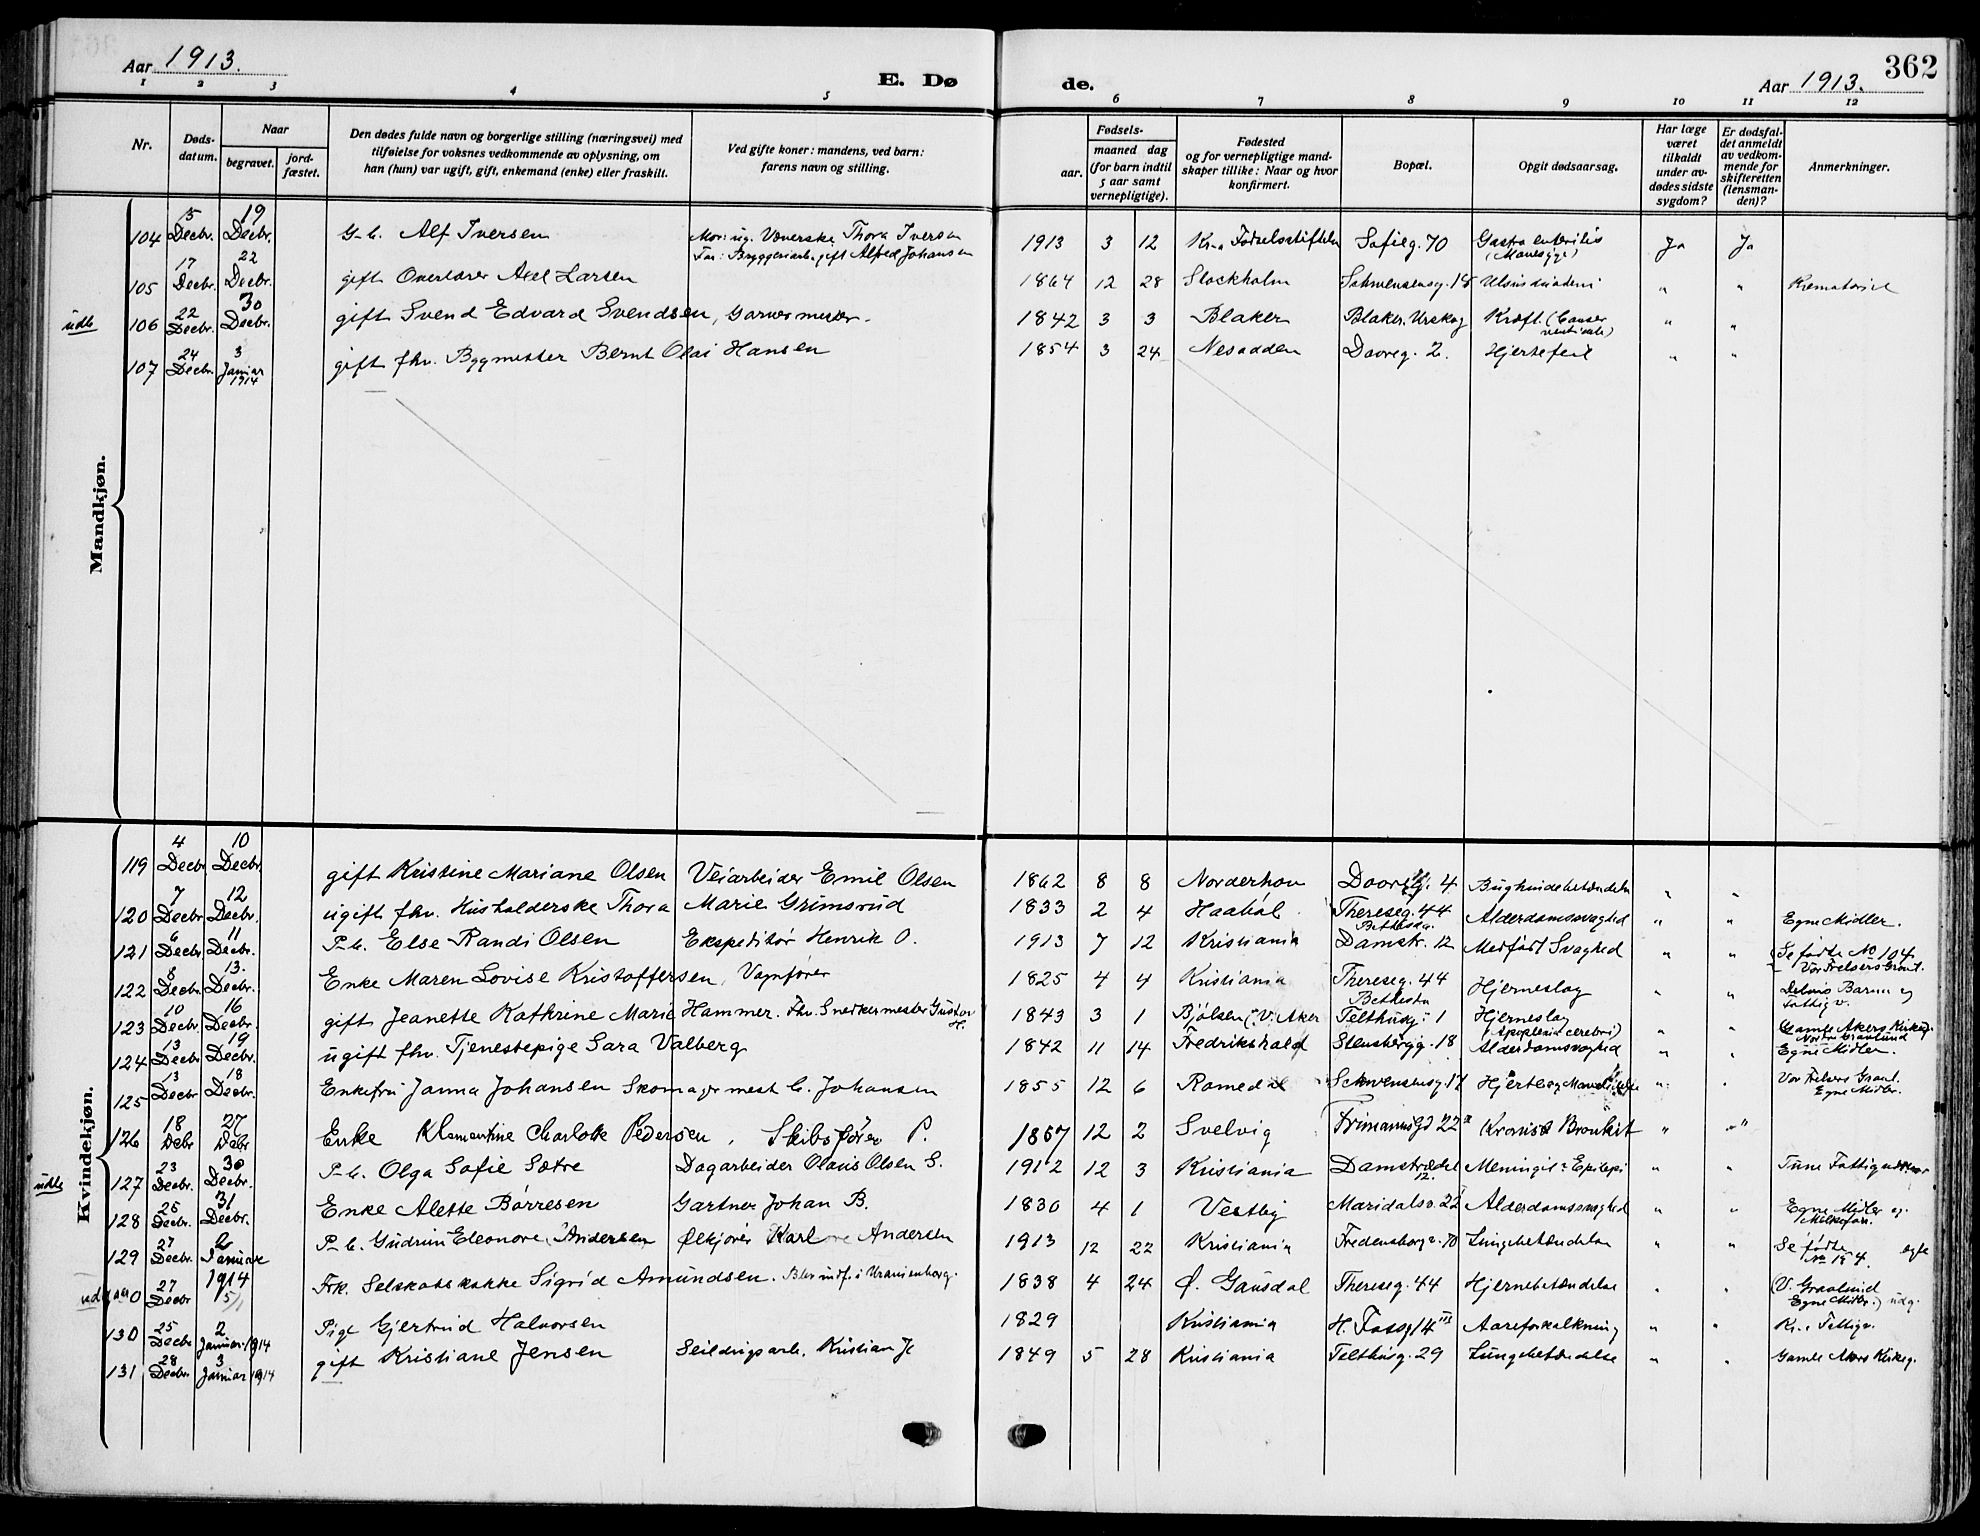 Aar 1913.
E. Dø
de.
Aar 1913.
362
1 2 3 4 5 6 7 8 9 10 11 12
Nr.
Døds-
datum.
Naar
begravet.
jord-
fæstet.
Den dødes fulde navn og borgerlige stilling (næringsvei) med
tilføielse for voksnes vedkommende av oplysning, om
han (hun) var ugift, gift, enkemand (enke) eller fraskilt.
Ved gifte koner: mandens, ved barn:
farens navn og stilling.
Fødsels-
aar.
maaned dag
(for barn indtil
5 aar samt
vernepligtige).
Fødested
og for vernepligtige mand-
skaper tillike: Naar og hvor
konfirmert.
Bopæl.
Opgit dødsaarsag.
Har læge
været
tilkaldt
under av-
dødes sidste
sygdom?
Er dødsfal-
det anmeldt
av vedkom-
mende for
skifteretten
(lensman-
den)?
Anmerkninger.
Mandkjøn.
104 15 Decbr. 19 Decbr. G. b. Alf Iversen Mor: ug. Væverske Thora Iversen
Far: Bryggeriarb. gift Alfred Johansen 1913 3 12 Kr.a Fødselsstiftelse Sofieg. 70 Gastro enteritis
(Mavesyge) Ja Ja
105 17 Decbr. 22 Decbr. gift Overlærer Axel Larsen 1864 12 28 Stockholm Schwensensg. " "
udb 106 22 Decbr. 30 Decbr. gift Svend Edvard Svendsen, Garvermester. 1842 3 3 Blaker Blaker, Urskog Kræft (Cancer
ventriculi) " "
107 24 Decbr. 3 Januar 1914 gift fhv. Bygmester Bernt Olai Hansen 1854 3 24 Nesodden Dovreg. 2. Hjertefeil " "
Kvindekjøn.
119 4 Decbr. 10 Decbr. gift Kristine Mariane Olsen Veiarbeider Emil Olsen 1862 8 8 Norderhov Dovreg. 4 Bughindebetændelse " "
120 7 Decbr. 12 Decbr. ugift fhv. Husholderske Thora Marie Grimsrud 1833 2 4 Haabøl Thereseg. 44
Bethesda Alderdomssvaghed " " Egne Midler.
121 6 Decbr. 11 Decbr. P. b. Else Randi Olsen Ekspeditør Henrik O. 1913 7 12 Kristiania Damstr. 12 Medfødt Svaghed " " Se fødte No 104
Vor Frelsers Gravl.
122 8 Decbr. 13. Decbr. Enke Maren Lovise Kristoffersen, Vognfører 1825 4 4 Kristiania Thereseg. 44
Bethesda Hjerneslag " "
Fattigv.
123 10 Decbr. 16 Decbr. gift Jeanette Kathrine Marie Hammer. Fhv. Snedkermester Gustav
H. 1843 3 1 Bjølsen (V. Aker Telthusg. 1 Hjerneslag
(Apoplexia cerebri) " " Gamle Akers Kirkeg.
124 13 Decbr. 19 Decbr. ugift fhv. Tjenestepige Sara Valberg 1842 11 14 Fredrikshald Stensbergg. 18 Alderdomssvaghed " " Nordre Gravlund
Egne Midler.
125 13 Decbr 18 Decbr. Enkefru Janna Johansen Skomagermest C. Johansen 1855 12 6 Romedal Schwensensg 17 " " Vor Frelsers Gravl.
Egne Midler.
126 18 Debr 27 Debr Enke Klementine Charlotte Pedersen, Skibsfører P. 1867 12 2 Svelvig Frimannsgd 22 II Kronisk Bronkit " "
udb 127 23 Decbr. 30 Decbr. P. b. Olga Sofie Sætre Dagarbeider Olavis Olsen S. 1912 12 3 Kristiania Damstrædet
12. " " Tune Fattigv.
128 26 Decbr. 31 Decbr. Enke Alette Børresen Gartner Johan B. 1830 4 1 Vestby Maridalsv. 22 Alderdomssvaghed " " Egne Midler og
129 27 Decbr. 2 Januar 1914 P. b. Gudrun Eleonore Andersen Ølkjører Karl Andersen 1913 12 22 Kristiania Fredensborgv. Lungebetændelse " " Se fødte
egte
27 Decbr 5/1 Frk. Selskabskokke Sigrid Amundsen. Blev indf. i Uranienborg. 1838 4 24 Ø. Gausdal Thereseg. 44 Hjernebetændelse " " V. Gravlund
Egne Midler.) udg.
130 25 Decbr 2 Januar 1914 Pige Gjertrud Halvorsen 1829 Kristiania H. Fossg 14 III Aareforkalkning " " Kr.a Fattigv.
131 28 Decbr. 3 Januar 1914 gift Kristiane Jensen Seildugsarb. Kristian J. 1849 5 28 Kristiania Telthusg. 29 Lungebetændelse " " Gamle Akers Kirkeg.